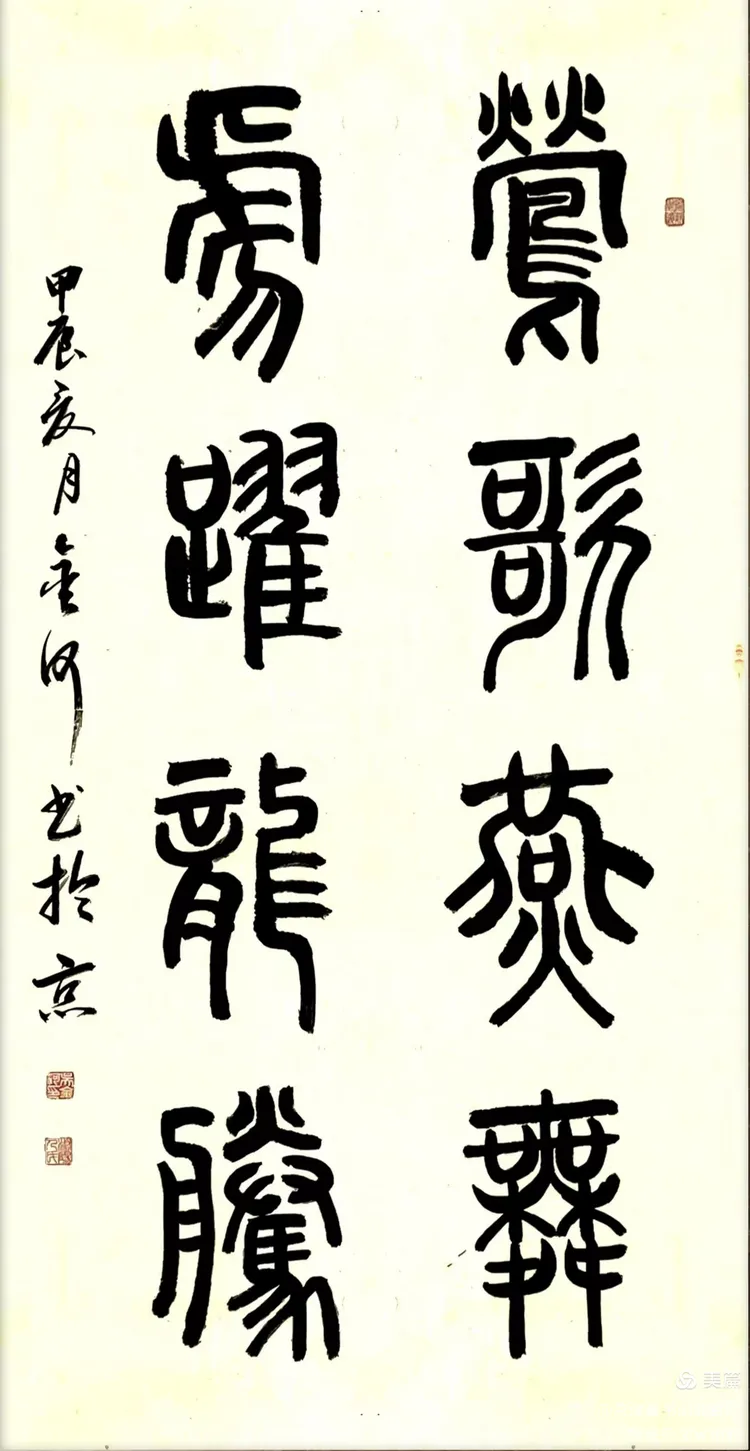 鶯歌燕舞
虎躍龍騰
甲辰夏月金河书於京
美篇